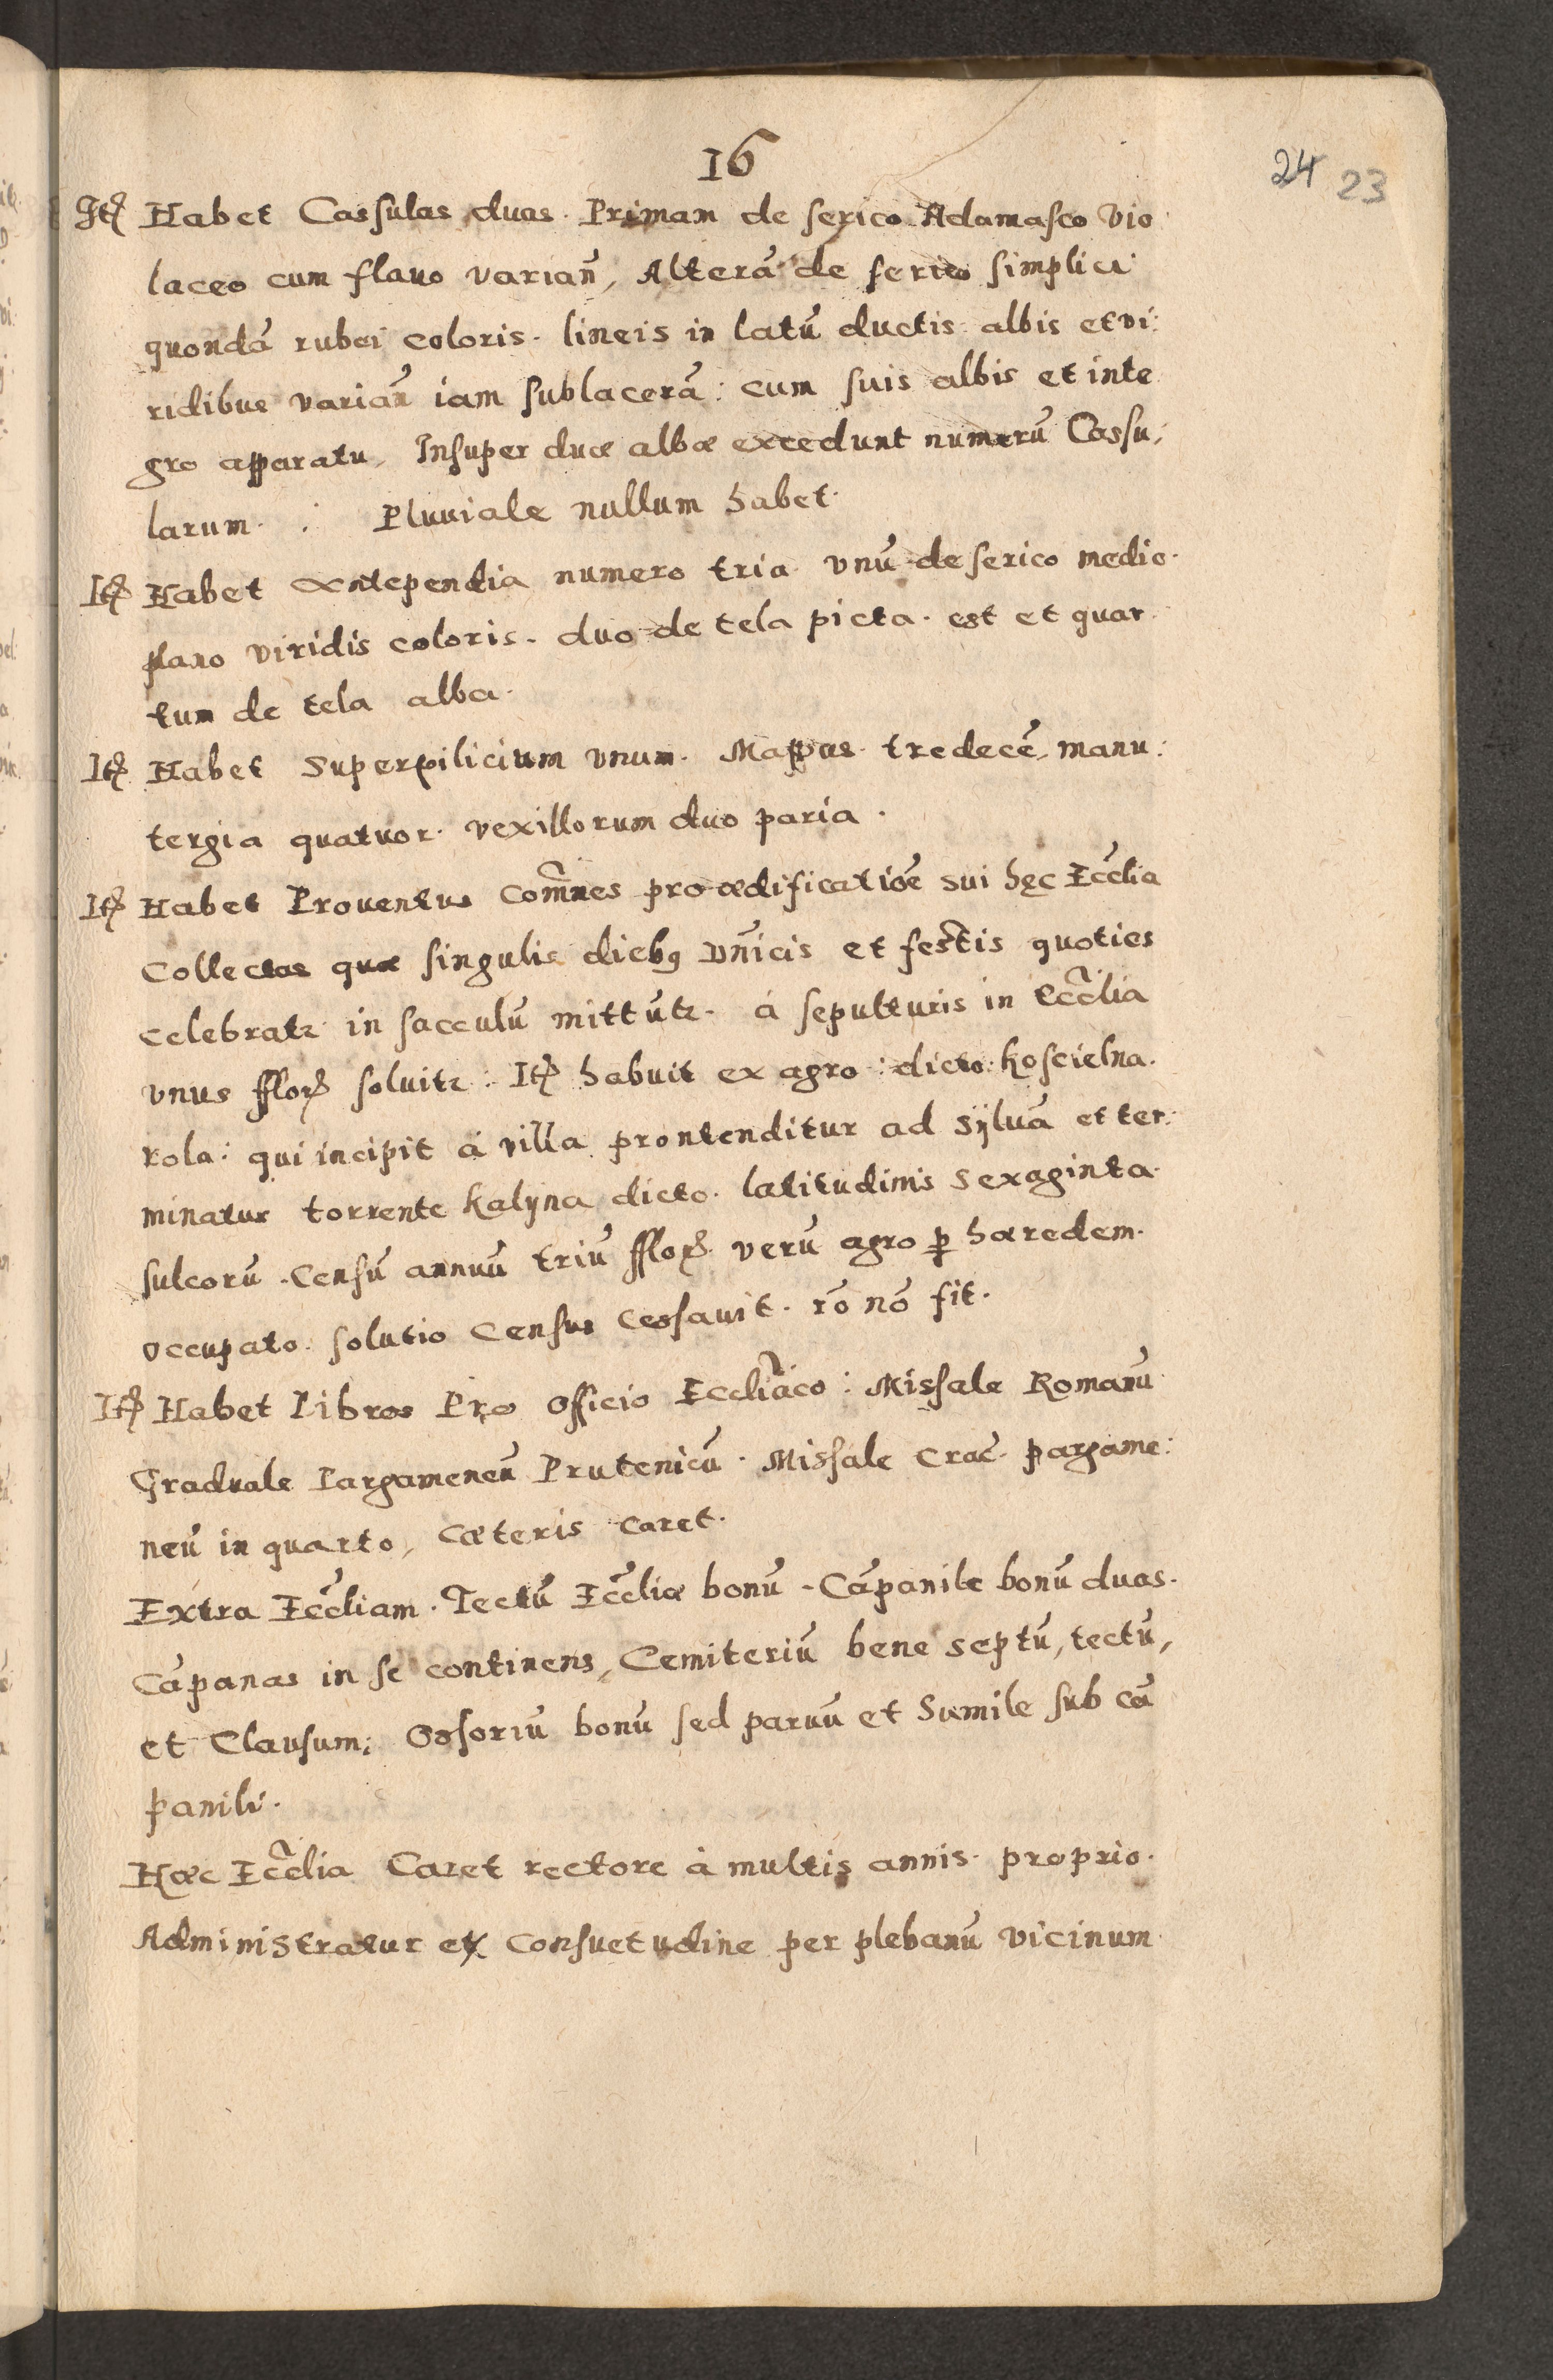 16
24 23
Itꝫ Habet Cassulas duas. Primam de serico Adamasco Vio
laceo cum flauo varian̄, Alterā de serico simplici
quondā rubei coloris. lineis in latū ductis albis et vi:
ridibus varian̄ iam sublacerā: cum suis albis et inte
gro apparatu, Insuper duæ albæ excedunt numerū Cassu,
larum. : Pluuiale nullum habet.
Itꝫ Habet Antependia numero tria vnū de serico medio.
plano viridis coloris. duo de tela picta. est et quar.
tum de tela alba.
Itꝫ Habet Superpilicium vnum. Mappas tredecē, manu:
tergia quatuor. vexillorum duo paria.
Itꝫ Habet Prouentus Com̄nes pro ædificatiōe sui hęc Eccl̄ia
Collectas quæ singulis diebꝯ Dn̄icis et festis quoties
celebratꝛ in sacculū mittūtꝛ. à sepulturis in Eccl̄ia
vnus fflorꝫ soluitꝛ: Itꝫ habuit ex agro: dicto: Koscielna.
rola: qui incipit à villa prontenditur ad sÿluā et ter:
minatur torrente Kalÿna dicto. latitudinis sexaginta.
sulcorū. Censū annuū triū fflorꝫ. verū agro ꝑ hæredem.
occupato. solutio Census Cessauit. rō nō fit.
Itꝫ Habet Libros Pro Officio Eccliāco: Missale Romanū
Graduale Pargameneū Prutenicū. Missale Crac̄. pargame:
neū in quarto, Cæteris caret.
Extra Eccl̄iam. Tectū Eccl̄iæ bonū. Cāpanile bonū duas.
Cāpanas in se continens, Cemiteriū bene septū, tectū,
et Clausum; Ossoriū bonū sed paruū et Simile sub cā
panili.
Hæc Eccl̄ia Caret rectore à multis annis. proprio.
Administratur ex Consuetudine per plebanū vicinum